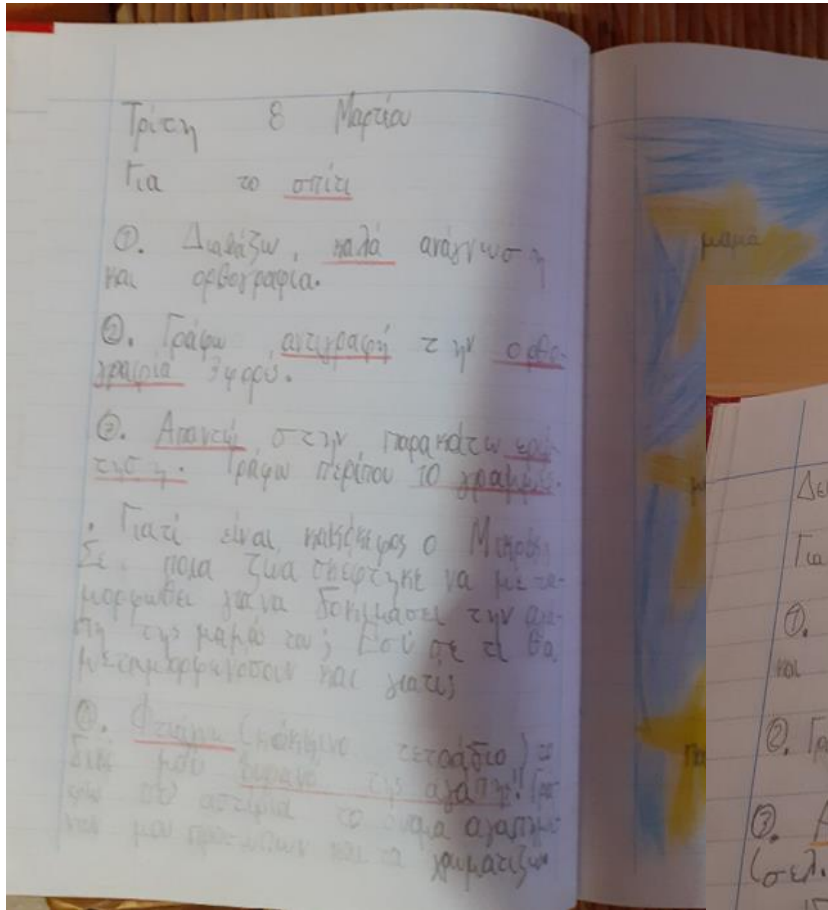 Τρίτη 8 Μαρτίου
Για το σπίτι
①. Διαβάζω, καλά ανάγνωση
και ορθογραφία.
②. Γράφω αντιγραφή την ορθο-
γραφία 3 φορύ.
③. Απαντώ στην παρακάτω ερώ
τηση. Γράφω περίπου 10 γραμμές.
. Γιατί είναι κακόκεφος ο
Σε ποια ζώα σκέφτηκε να μετα-
μορφωθεί για να δοκιμάσει την αγά-
πη της μαμάς του; Εσύ σε τι θα
και γιατί;
④. Φτιάχνω (κόκκινο τετράδιο) το
δικό μου ουρανό της αγάπης! Γρά
φω στα αστέρια το όνομα αγαπημέ
νων μου προσώπων και τα χρωματίζω
μαμά
Δε
Για
①.
και
②. Γρ
③. Α
(σελ.